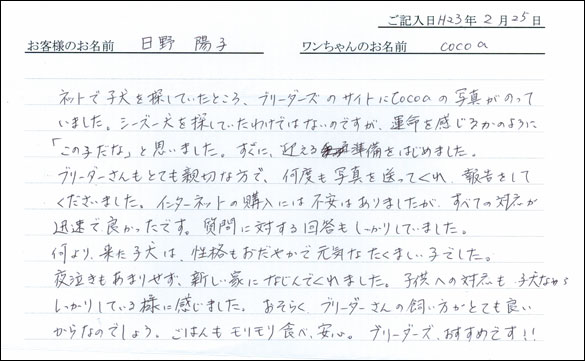 ご記入日H23年2月25日
お客様のお名前 日野 陽子 ワンちゃんのお名前 cocoa
ネットで子犬を探していたところ、ブリーダーズのサイトにCocoaの写真がのって
いました。シーズー犬を探していたわけではないのですが、運命を感じるかのように
「この子だな」と思いました。すぐに、迎える準備をはじめました。
ブリーダーさんもとても親切な方で、何度も写真を送ってくれ、報告をして
くださいました。インターネットの購入には不安はありましたが、すべての対応が
迅速で良かったです。質問に対する回答もしっかりしていました。
何より、来た子犬は、性格もおだやかで元気なたくましい子でした。
夜泣きもあまりせず、新しい家になじんでくれました。子供への対応も子犬ながら
しっかりしている様に感じました。おそらく、ブリーダーさんの飼い方がとても良い
からなのでしょう。ごはんもモリモリ食べ、安心。ブリーダーズ、おすすめです!!